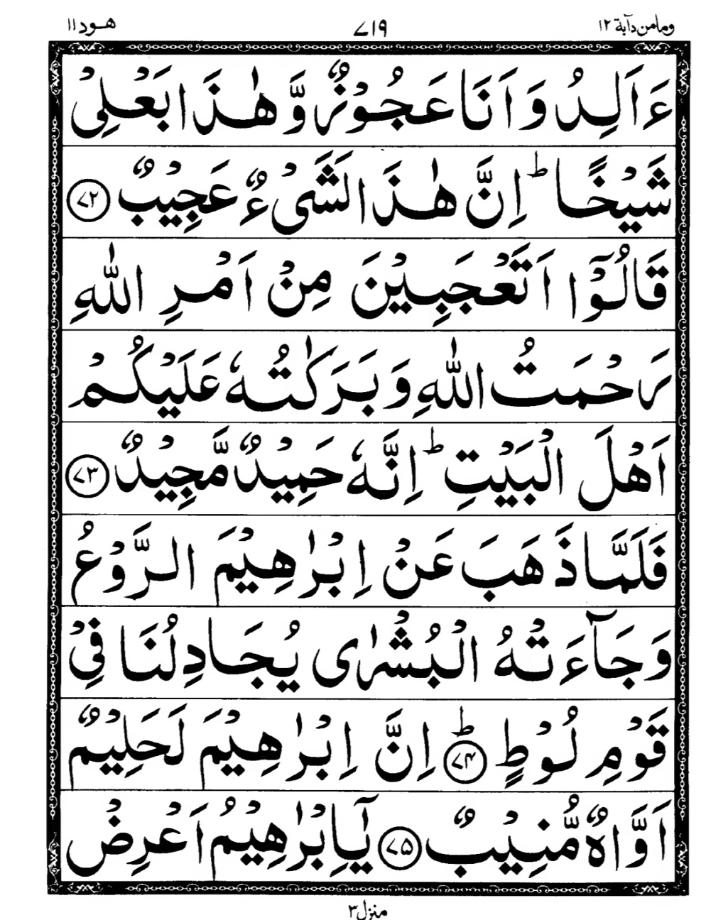 ومامن دآبة ۱۲ ۷۱۹ هود ۱۱
ءَاَلِدُ وَاَنَا عَجُوْزٌ وَّ هٰذَا بَعْلِىْ
شَيْخًا ؕ اِنَّ هٰذَا لَشَىْءٌ عَجِيْبٌ ۷۲
قَالُوْۤا اَتَعْجَبِيْنَ مِنْ اَمْرِ اللّٰهِ
رَحْمَتُ اللّٰهِ وَ بَرَكٰتُهٗ عَلَيْكُمْ
اَهْلَ الْبَيْتِ ؕ اِنَّهٗ حَمِيْدٌ مَّجِيْدٌ ۷۳
فَلَمَّا ذَهَبَ عَنْ اِبْرٰهِيْمَ الرَّوْعُ
وَجَآءَتْهُ الْبُشْرٰى يُجَادِلُنَا فِىْ
قَوْمِ لُوْطٍ ؕ ۷۴ اِنَّ اِبْرٰهِيْمَ لَحَلِيْمٌ
اَوَّاهٌ مُّنِيْبٌ ۷۵ يٰۤاِبْرٰهِيْمُ اَعْرِضْ
منزل ۳